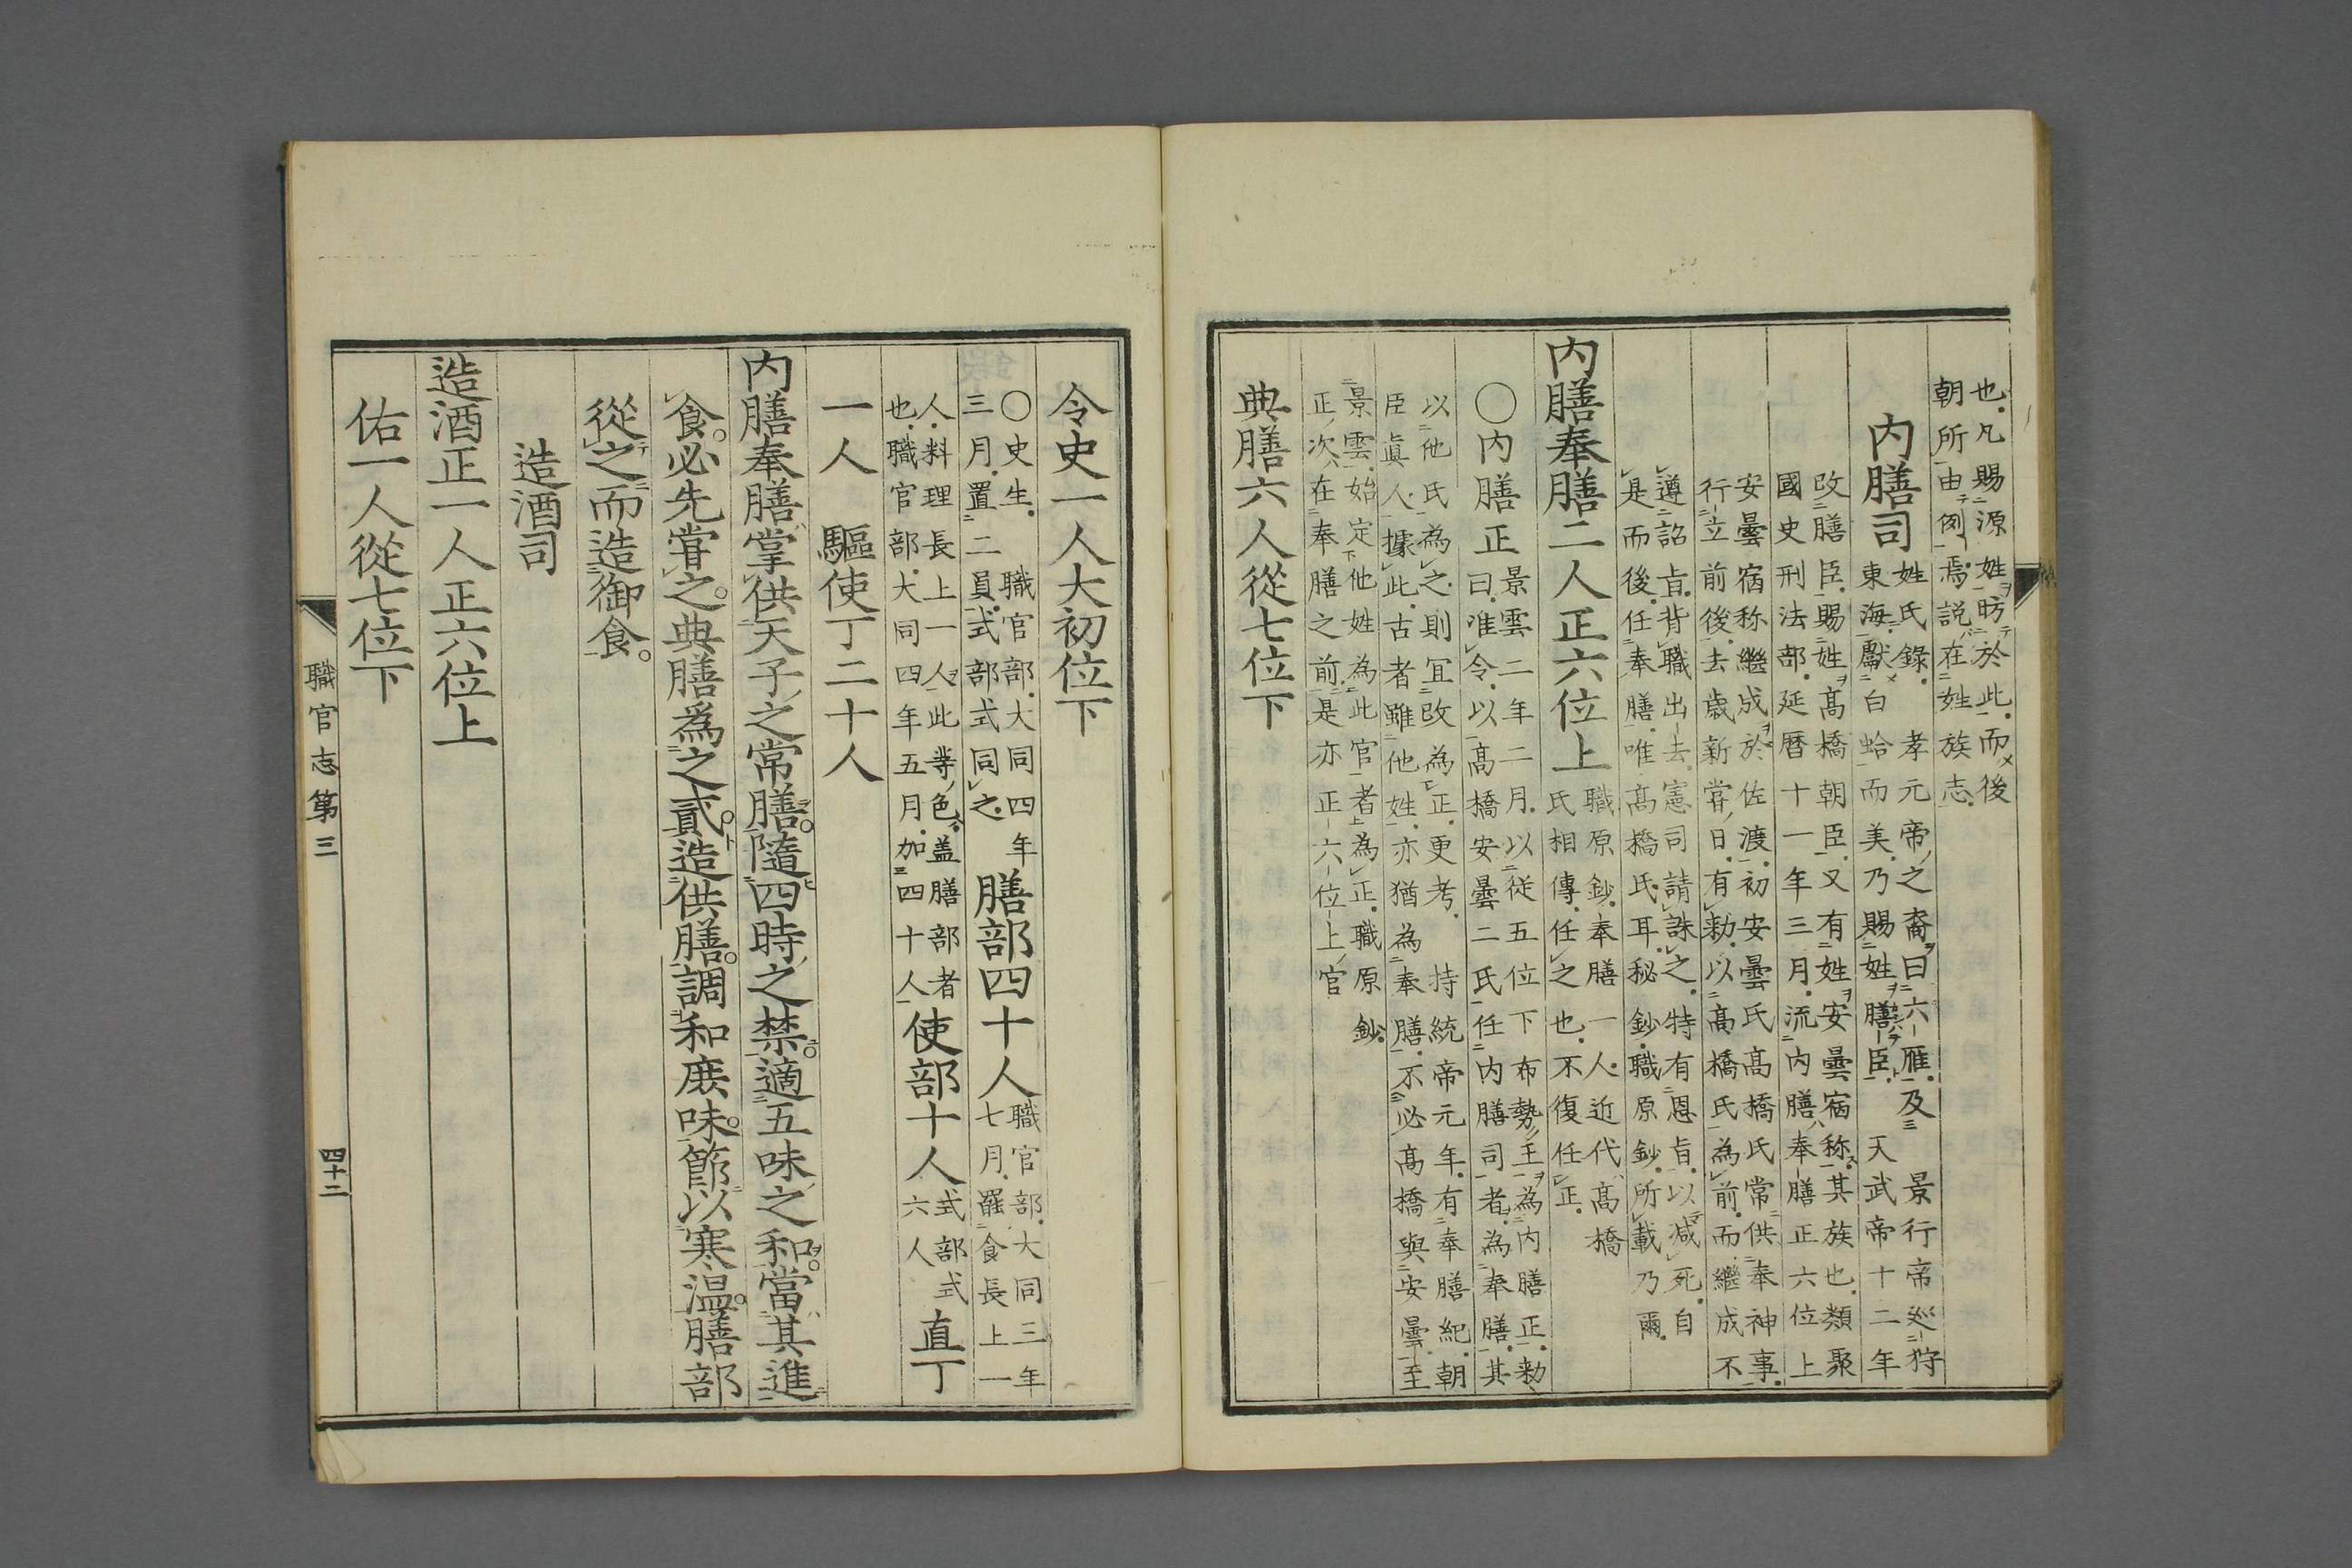 也凡賜源姓昉於此而後
朝所由例焉説在姓族志
内膳司
姓氏錄孝元帝之裔曰六雁及景行帝巡狩
東海獻白蛤而美乃賜姓膳臣天武帝十二年
改膳臣賜姓高橋朝臣又有姓安曇宿称其族也類聚
國史刑法部延暦十一年三月流内膳奉膳正六位上
安曇宿称繼成於佐渡初安曇氏高橋氏常供奉神事
行立前後去歳新甞日有勅以高橋氏為前而繼成不
遵詔旨背職出去憲司請誅之特有恩旨以減死自
是而後任奉膳唯高橋氏耳秘鈔職原鈔所載乃爾
内膳奉膳二人正六位上
職原鈔奉膳一人近代高橋
氏相傳任之也不復任正
○内膳正
景雲二年二月以従五位下布勢王為内膳正勅
曰唯令以高橋安曇二氏任内膳司者為奉膳其
以他氏為之則冝改為正更考持統帝元年有奉膳紀朝
臣眞人據此古者雖他姓亦猶為奉膳不必高橋與安曇至
景雲始定他姓為此官者為正職原鈔
正次在奉膳之前是亦正六位上官
典膳六人從七位下
令史一人大初位下
○史生職官部大同四年
三月置二員式部式同之
膳部四十人
職官部大同三年
七月羅食長上一
人料理長上一人此等色盖膳部者
也職官部大同四年五月加四十人
使部十人
式部式
六人
直丁
一人 驅使丁二十人
内膳奉膳掌供天子之常膳隨四時之禁適五味之和當其進
食必先甞之典膳爲之貳造供膳調和庶味節以寒温膳部
從之而造御食
造酒司
造酒正一人正六位上
佑一人從七位下
職官志第三
四十二